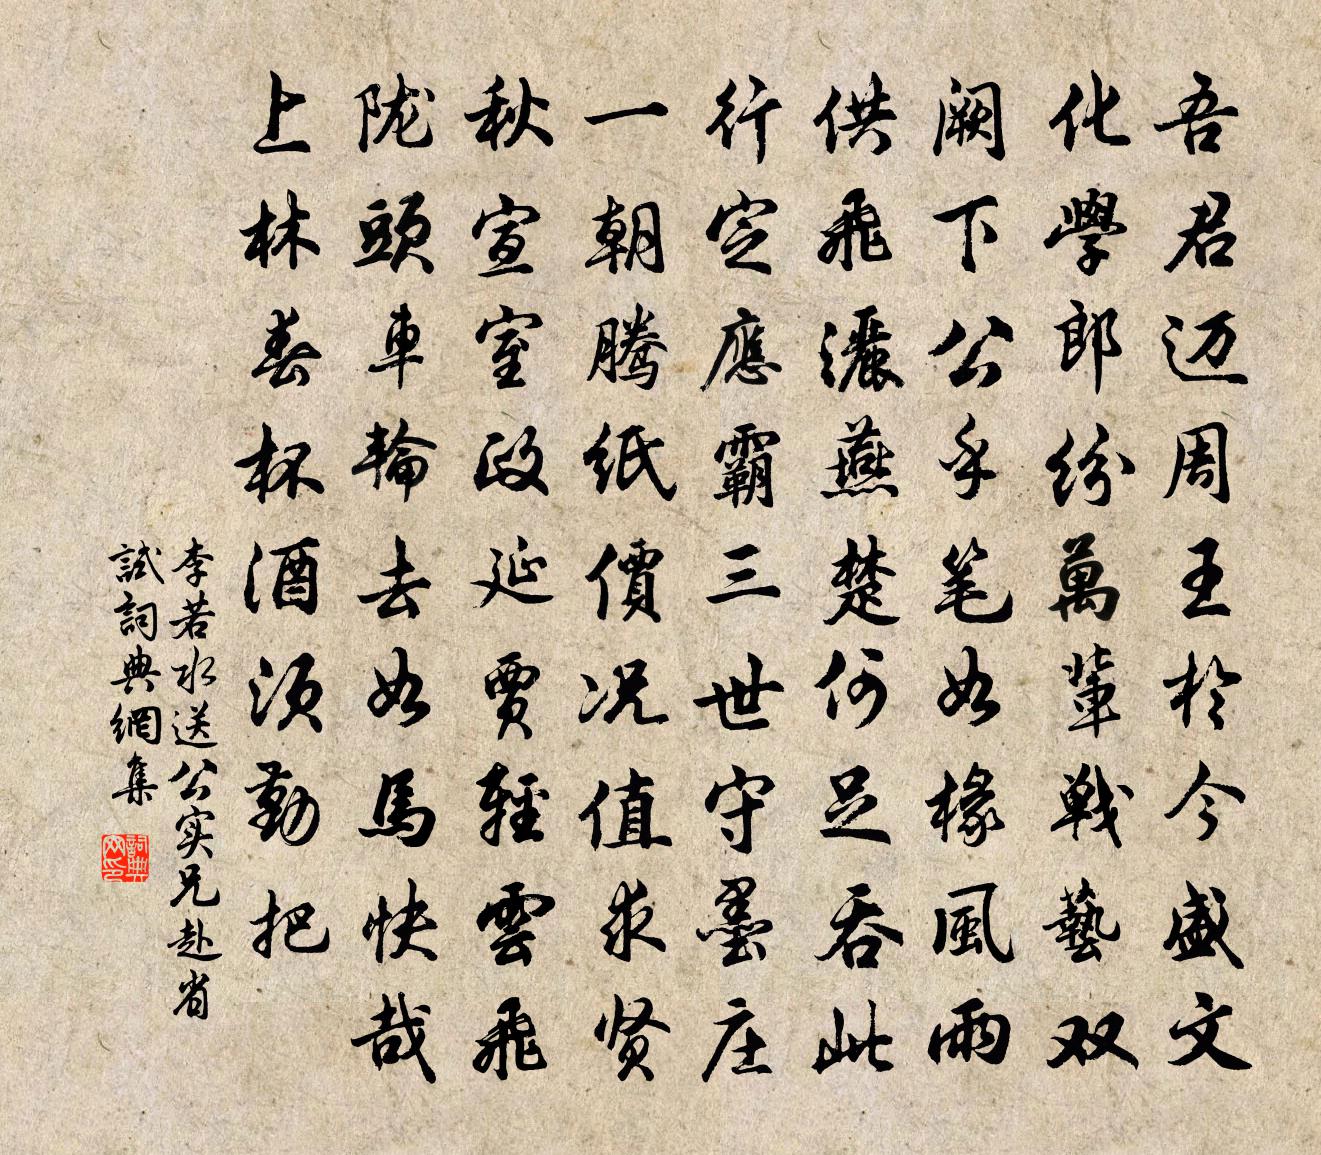 吾君迈周王於今盛文
化學郎紛萬輩戦藝双
阙下公手笔如椽風雨
供飛灑燕楚何足吞此
行定應霸三世守墨庄
一朝騰紙價况值求贤
秋宣室政延賈輕雲飛
陇頭車輪去如馬快哉
上林春杯酒须勤把
李若水送公实兄赴省
試詞典網集
詞典網印